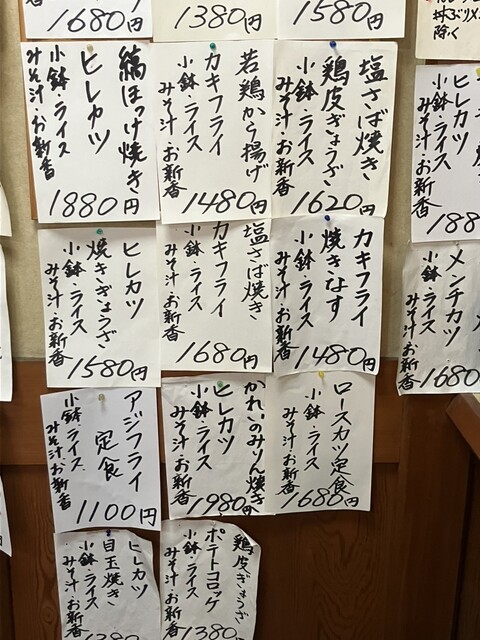 1680円
1380円
1580円
丼ぶりメ
除く
縞ほっけ焼き
ヒレカツ
小鉢・ライス
みそ汁・お新香
1880円
若鶏から揚げ
カキフライ
小鉢・ライス
みそ汁・お新香
1480円
塩さば焼き
鶏皮ぎょうざ
小鉢・ライス
みそ汁・お新香
1620円
ヒレカツ
小鉢・ライス
みそ汁・お新香
188
ヒレカツ
焼きぎょうざ
小鉢・ライス
みそ汁・お新香
1580円
塩さば焼き
カキフライ
小鉢・ライス
みそ汁・お新香
1680円
カキフライ
焼きなす
小鉢・ライス
みそ汁・お新香
1480円
メンチカツ
小鉢・ライス
みそ汁・お新香
1680
アジフライ
定食
小鉢・ライス
みそ汁・お新香
1100円
かれいのみりん焼き
ヒレカツ
小鉢・ライス
みそ汁・お新香
1980円
ロースカツ定食
小鉢・ライス
みそ汁・お新香
1680円
ヒレカツ
目玉焼き
小鉢・ライス
みそ汁・お新香
1380円
鶏皮ぎょうざ
ポテトコロッケ
小鉢・ライス
みそ汁・お新香
1380円